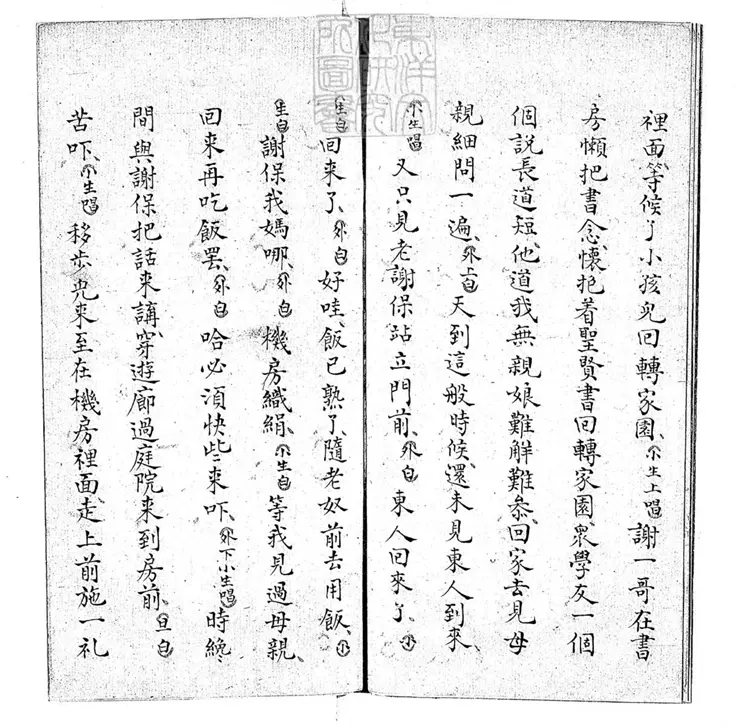 裡面、等候了小孩兒回轉家園、小生上唱謝一哥在書
房懶把書念、懷抱着聖賢書回轉家園、衆學友一個
個說長道短、他道我無親娘難觧難叅、回家去見母
親細問一遍、外上白天到這般時候、還未見東人到來、
小生唱又只見老謝保站立門前、外白東人回來了、小
生白回來了、外白好哇、飯已熟了、隨老奴前去用飯、小
生白謝保我媽哪、外白機房織絹、小生白等我見過母親、
回來再吃飯罷、外白哈必須快些來吓、外下小生唱時纔
間與謝保把話來講、穿遊廊過庭院來到房前、旦白
苦吓、小生唱移步児來至在機房裡面、走上前施一礼